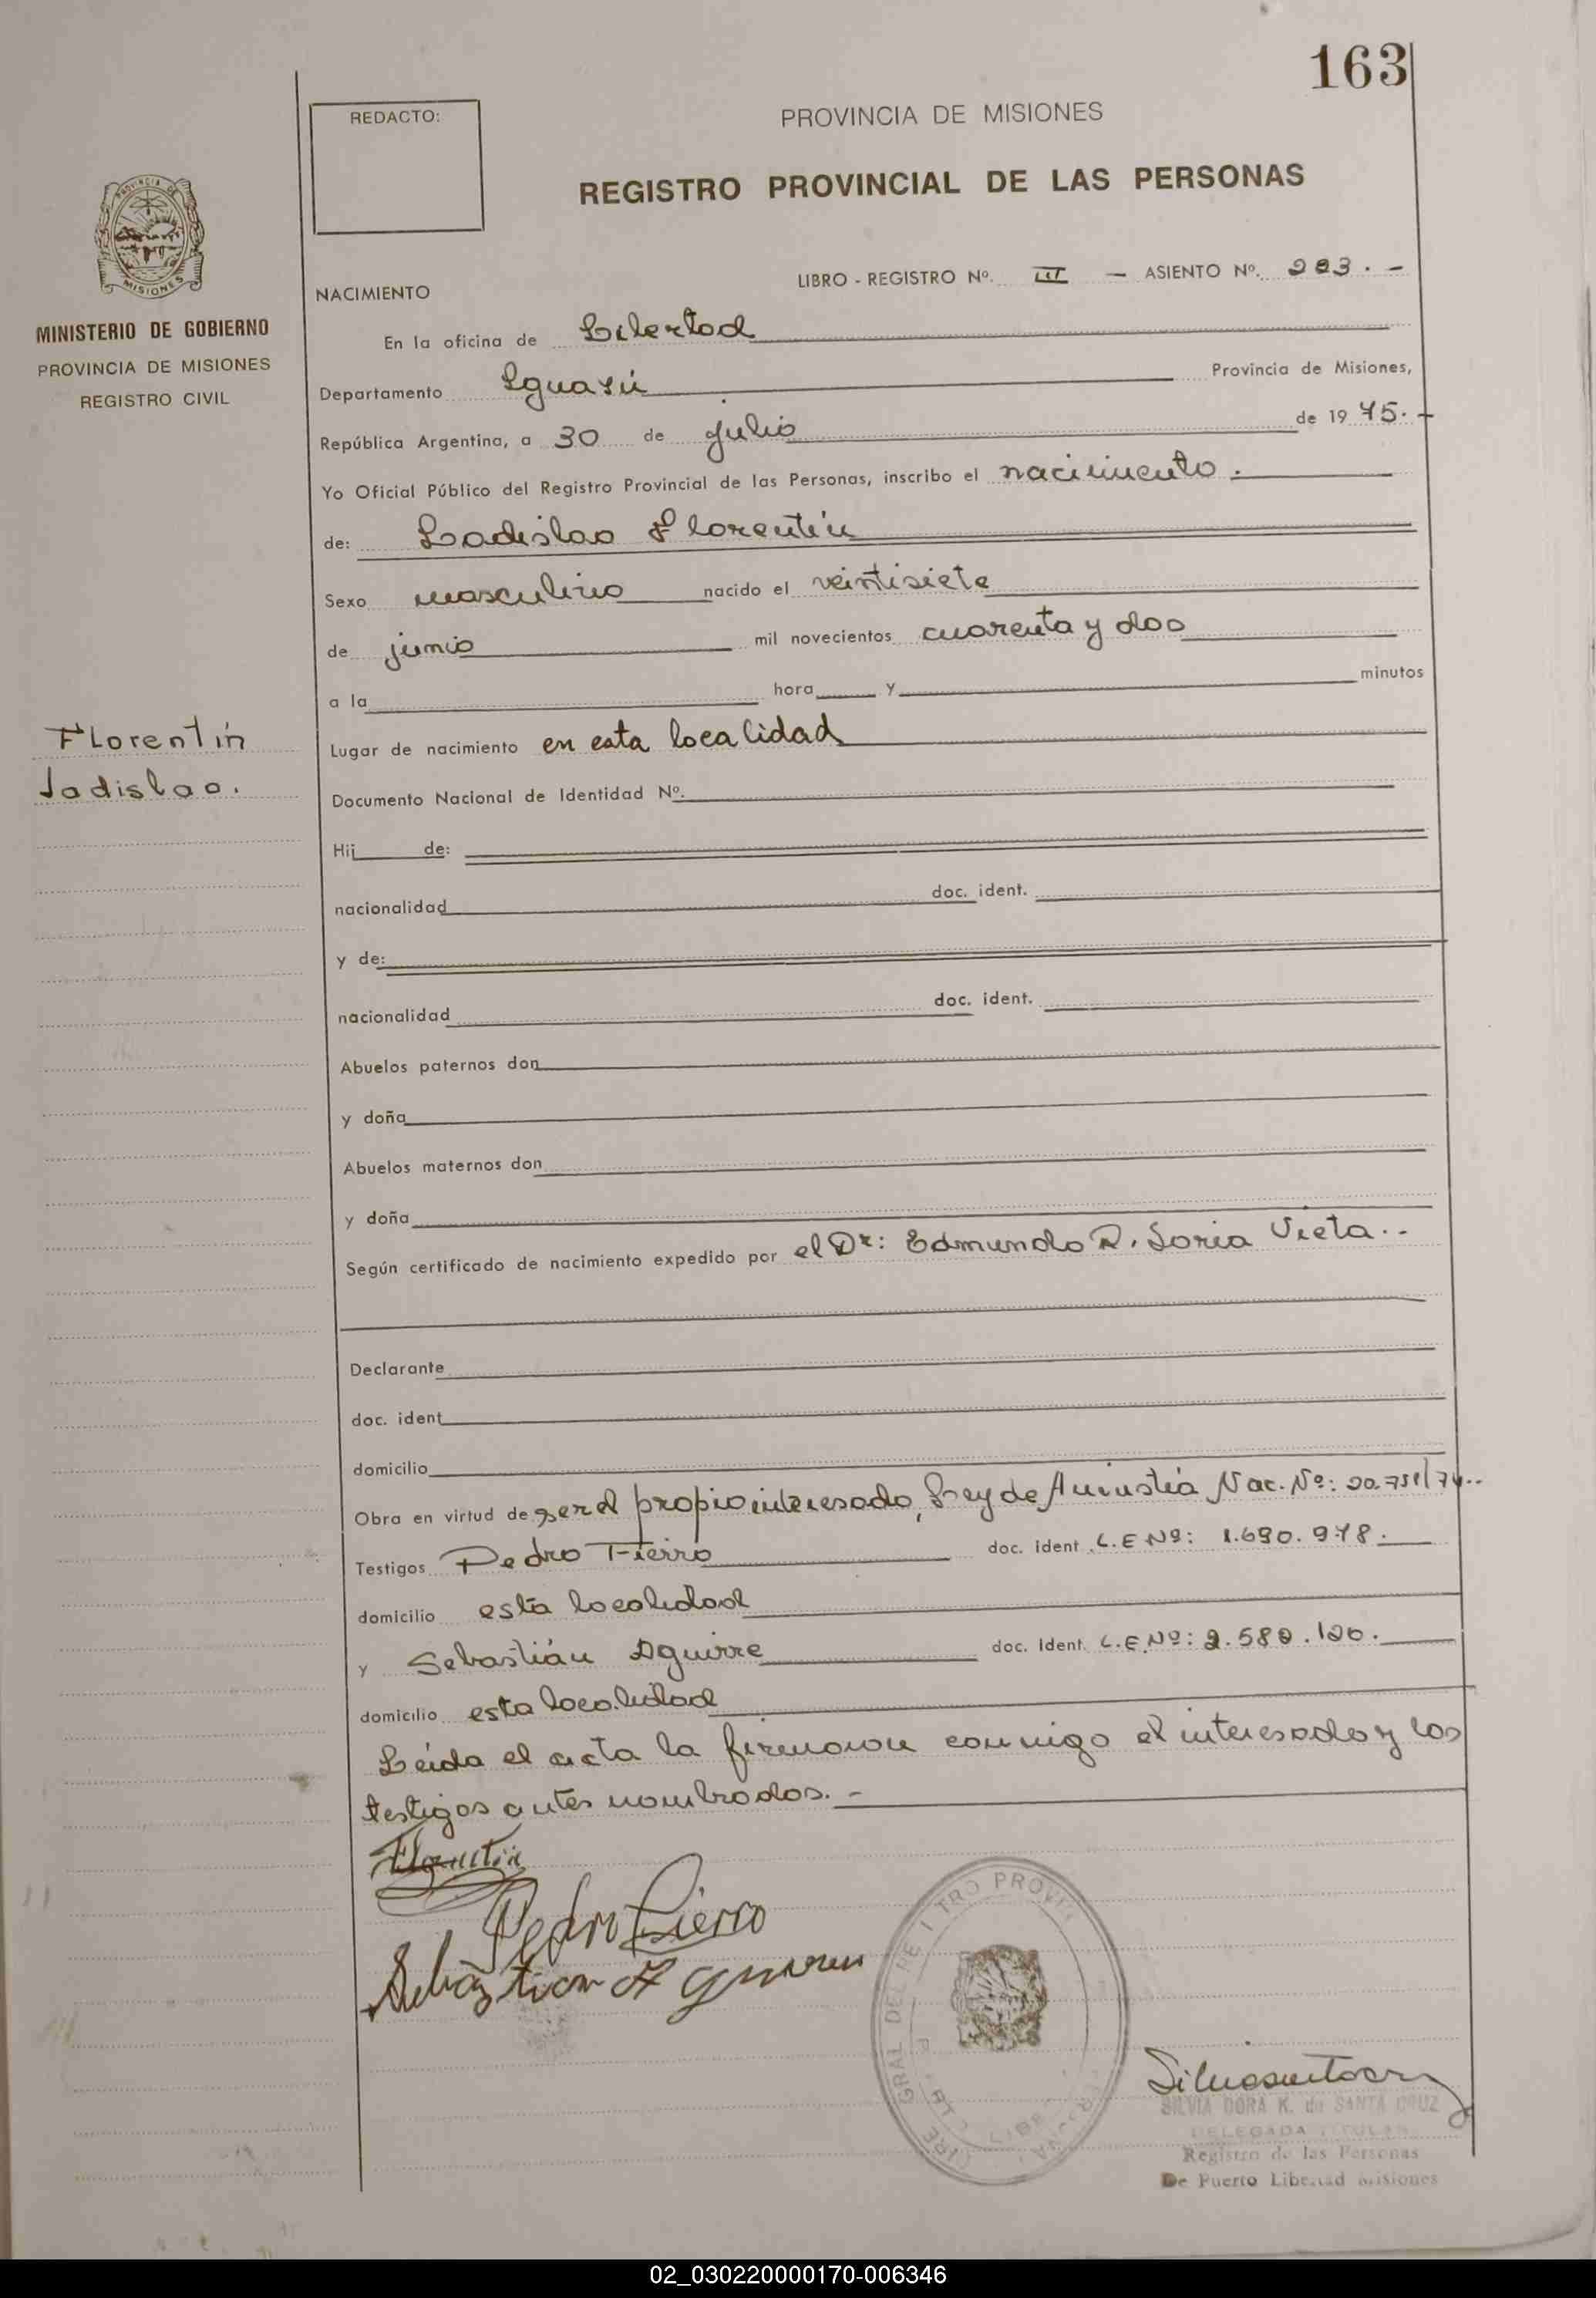 163
REDACTO:
PROVINCIA DE MISIONES
REGISTRO PROVINCIAL DE LAS PERSONAS
PROVINCIA DE
MISIONES
MINISTERIO DE GOBIERNO
PROVINCIA DE MISIONES
REGISTRO CIVIL
LIBRO - REGISTRO Nº. III — ASIENTO Nº. 283. -
NACIMIENTO
En la oficina de Libertad
Departamento Iguazú Provincia de Misiones,
República Argentina, a 30 de julio de 1975. -
Yo Oficial Público del Registro Provincial de las Personas, inscribo el nacimiento.
de: Ladislao Florentín
Sexo masculino nacido el veintisiete
de junio mil novecientos cuarenta y dos
a la hora y minutos
Florentín
Ladislao.
Lugar de nacimiento en esta localidad
Documento Nacional de Identidad Nº.
Hij de:
nacionalidad doc. ident.
y de:
nacionalidad doc. ident.
Abuelos paternos don
y doña
Abuelos maternos don
y doña
Según certificado de nacimiento expedido por el Dr: Edmundo R. Soria Vieta. -
Declarante
doc. ident
domicilio
Obra en virtud de ser el propio interesado, Ley de Amnistía Nac. Nº: 20.751/74..
Testigos Pedro Fierro doc. ident L.E Nº: 1.690.978.
domicilio esta localidad
y Sebastián Aguirre doc. Ident. L.E.Nº: 2.580.120.
domicilio esta localidad
Leída el acta la firmaron conmigo el interesado y los
testigos antes nombrados. -
Florentín
Pedro Fierro
Sebastian Aguirre
SILVIA DORA K. de SANTA CRUZ
DELEGADA TITULAR
Registro de las Personas
De Puerto Libertad Misiones
02_030220000170-006346